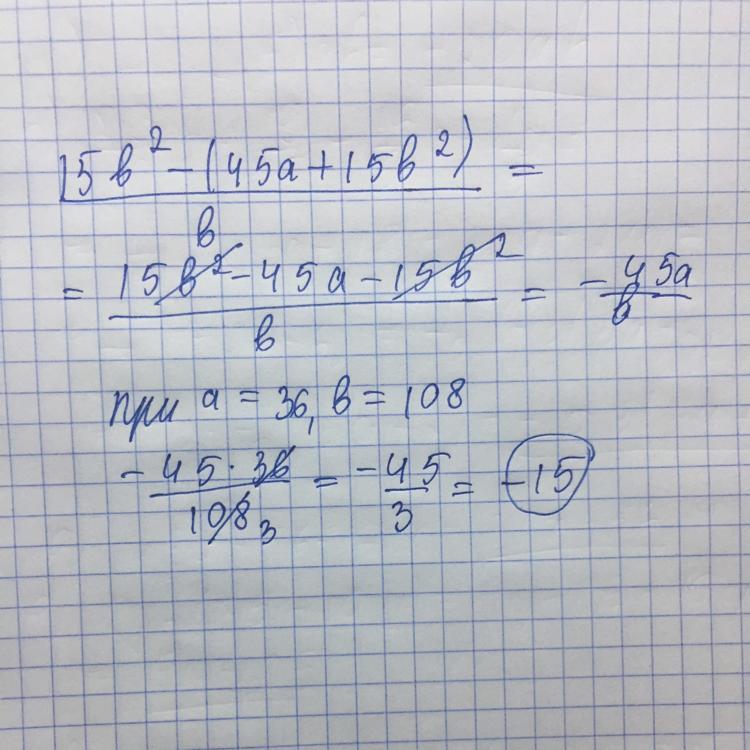 15b² - (45a + 15b²) / b =
= 15b² - 45a - 15b² / b = - 45a / b
при a = 36, b = 108
- 45 · 36 / 108 3 = - 45 / 3 = -15